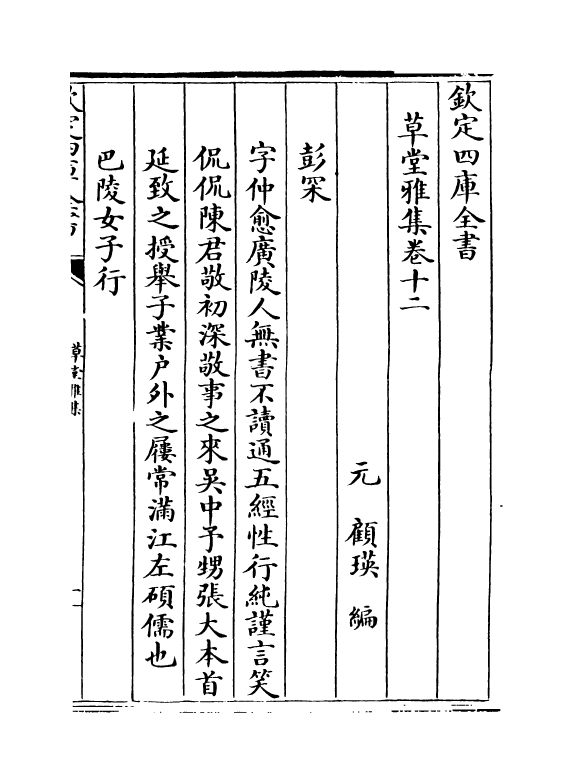 欽定四庫全書
草堂雅集卷十二
元 顧瑛 編
彭罙
字仲愈廣陵人無書不讀通五經性行純謹言笑
侃侃陳君敬初深敬事之來吳中予甥張大本首
延致之授舉子業户外之屨常滿江左碩儒也
巴陵女子行
欽定四庫全書
草堂雅集